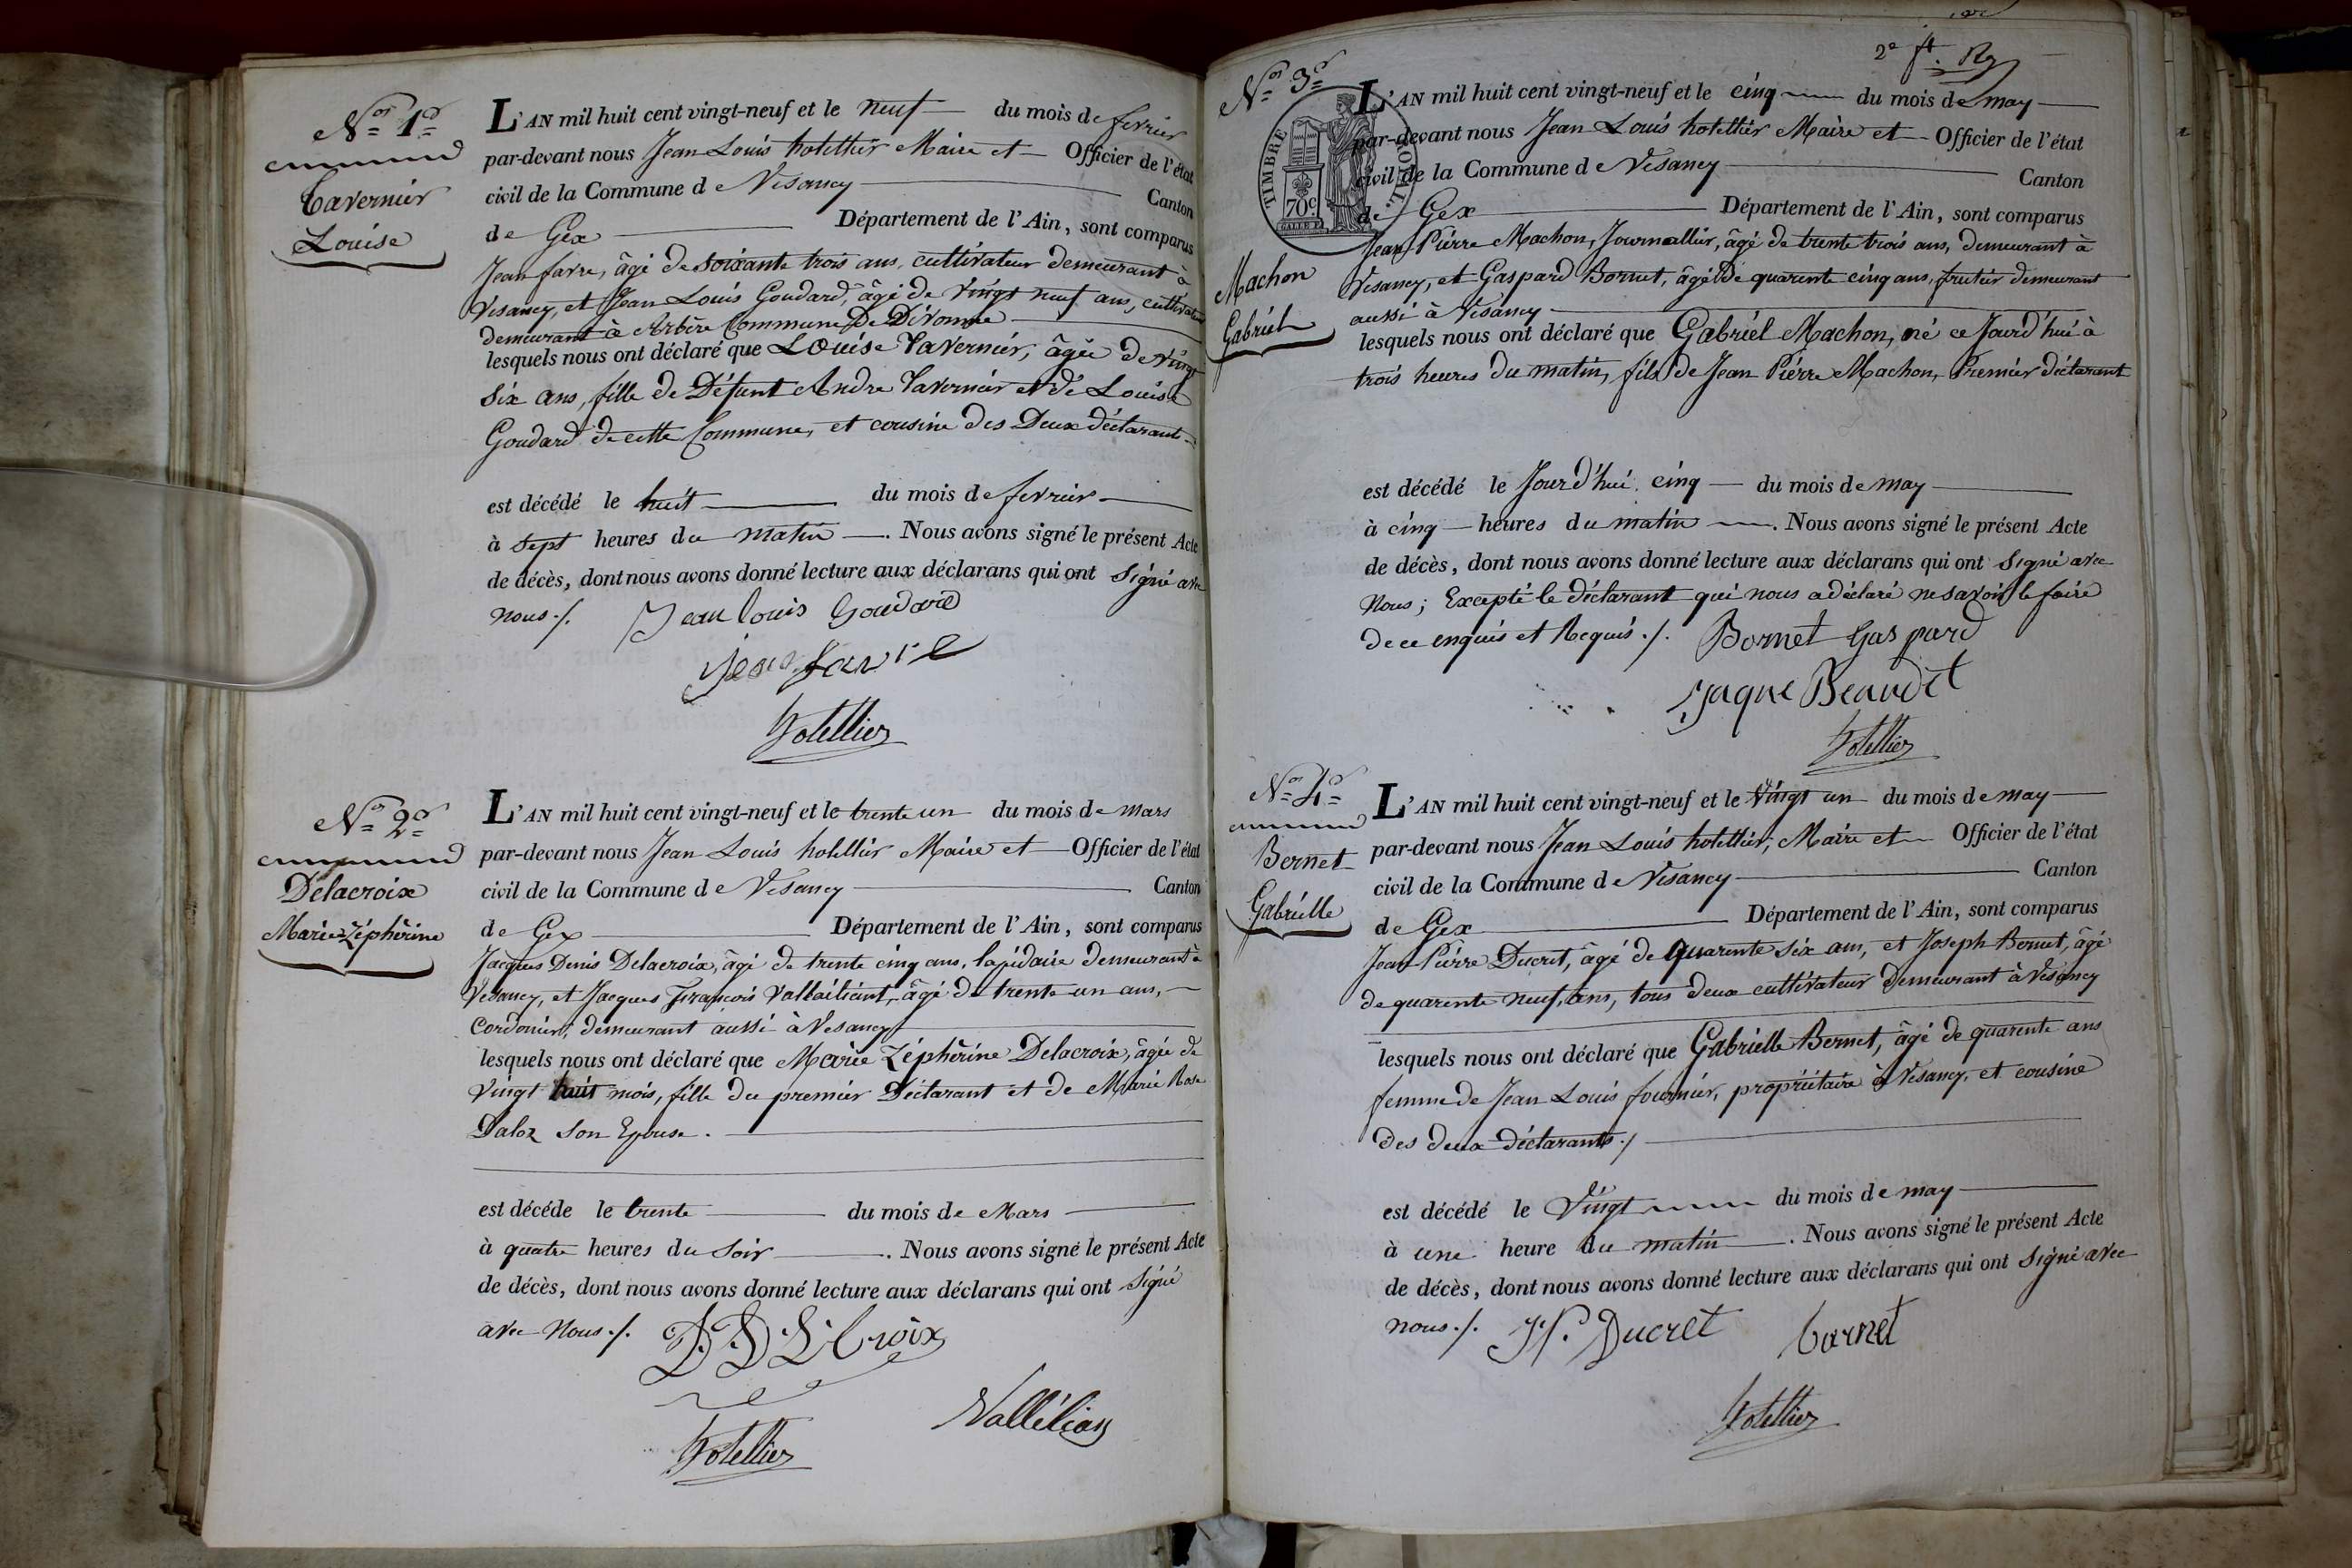 Nos 1er
Tavernier
Louise
L'AN mil huit cent vingt-neuf et le neuf du mois de fevrier
par-devant nous Jean Louis hotellier Maire et Officier de l'état
civil de la Commune de Vesancy Canton
de Gex Département de l'Ain, sont comparus
Jean favre, âgé de soixante trois ans, cultivateur demeurant à
Vesancy, et Jean Louis Goudard, âgé de vingt neuf ans, cultivateur
demeurant à Arbère Commune De Divonne
lesquels nous ont déclaré que Louise Tavernier, âgée de vingt
six ans, fille de Défunt Andre Tavernier et de Louise
Goudard de cette Commune, et cousine des Deux déclarants
est décédé le huit du mois de fevrier
à sept heures du matin. Nous avons signé le présent Acte
de décès, dont nous avons donné lecture aux déclarans qui ont signé avec
nous ./. Jean louis Goudard
jean favre
hotellier
Nos 2e
Delacroix
Marie Zéphèrine
L'AN mil huit cent vingt-neuf et le trente un du mois de mars
par-devant nous Jean Louis hotellier Maire et Officier de l'état
civil de la Commune de Vesancy Canton
de Gex Département de l'Ain, sont comparus
Jacques Denis Delacroix, âgé de trente cinq ans, lapidaire demeurant à
Vesancy, et Jacques François Vallailient, âgé de trente un ans,
Cordonier, demeurant aussi à Vesancy
lesquels nous ont déclaré que Marie Zéphèrine Delacroix, âgée de
vingt huit mois, fille du premier Déclarant et de Marie Rose
Daloz son Epouse.
est décéde le trente du mois de Mars
à quatre heures du Soir. Nous avons signé le présent Acte
de décès, dont nous avons donné lecture aux déclarans qui ont signé
avec Nous ./. DDLCroix
Vallélian
hotellier
2e ft. Rg
Nos 3e
TIMBRE ROYAL.
70c
Machon
Gabriel
L'AN mil huit cent vingt-neuf et le cinq du mois de may
par-devant nous Jean Louis hotellier Maire et Officier de l'état
civil de la Commune de Vesancy Canton
de Gex Département de l'Ain, sont comparus
Jean Pierre Machon, Journallier, âgé de trente trois ans, demeurant à
Vesancy, et Gaspard Bornet, âgé de quarente cinq ans, frutier demeurant
aussi à Vesancy
lesquels nous ont déclaré que Gabriel Machon, né ce Jourd'hui à
trois heures du matin, fils de Jean Pierre Machon, Premier déclarant
est décédé le Jourd'hui cinq du mois de may
à cinq heures du matin. Nous avons signé le présent Acte
de décès, dont nous avons donné lecture aux déclarans qui ont signé avec
Nous; Excepté le déclarant qui nous a déclaré ne savoir le faire
de ce enquis et Requis ./. Bornet Gaspard
Jaque Beaudet
hotellier
Nos 4e
Bernet
Gabrielle
L'AN mil huit cent vingt-neuf et le vingt un du mois de may
par-devant nous Jean Louis hotellier, Maire et Officier de l'état
civil de la Commune de Vesancy Canton
de Gex Département de l'Ain, sont comparus
Jean Pierre Ducret, âgé de quarente six ans, et Joseph Bernet, âgé
de quarente neuf, ans, tous deux cultivateur demeurant à Vesancy
lesquels nous ont déclaré que Gabrielle Bernet, âgé de quarente ans
femme de Jean Louis fournier, propriétaire à Vesancy, et cousine
des deux déclarants ./
est décédé le vingt du mois de may
à une heure du matin. Nous avons signé le présent Acte
de décès, dont nous avons donné lecture aux déclarans qui ont signé avec
nous ./. JP. Ducret bernet
hotellier